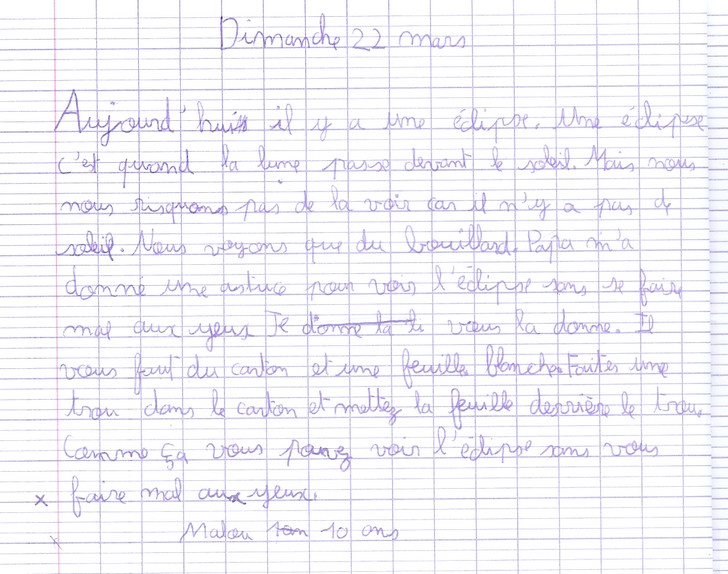 Dimanche 22 mars
Aujourd'hui il y a une éclipse. Une éclipse
c'est quand la lune passe devant le soleil. Mais nous
nous risquons pas de la voir car il n'y a pas de
soleil. Nous voyons que du brouillard. Papa m'a
donné une astuce pour voir l'éclipse sans se faire
mal aux yeux Je vous la donne. Il
vous faut du carton et une feuille blanche. Faites une
trou dans le carton et mettez la feuille derrière le trou.
Comme ça vous pouvez voir l'éclipse sans vous
x faire mal aux yeux.
Malou 10 ans